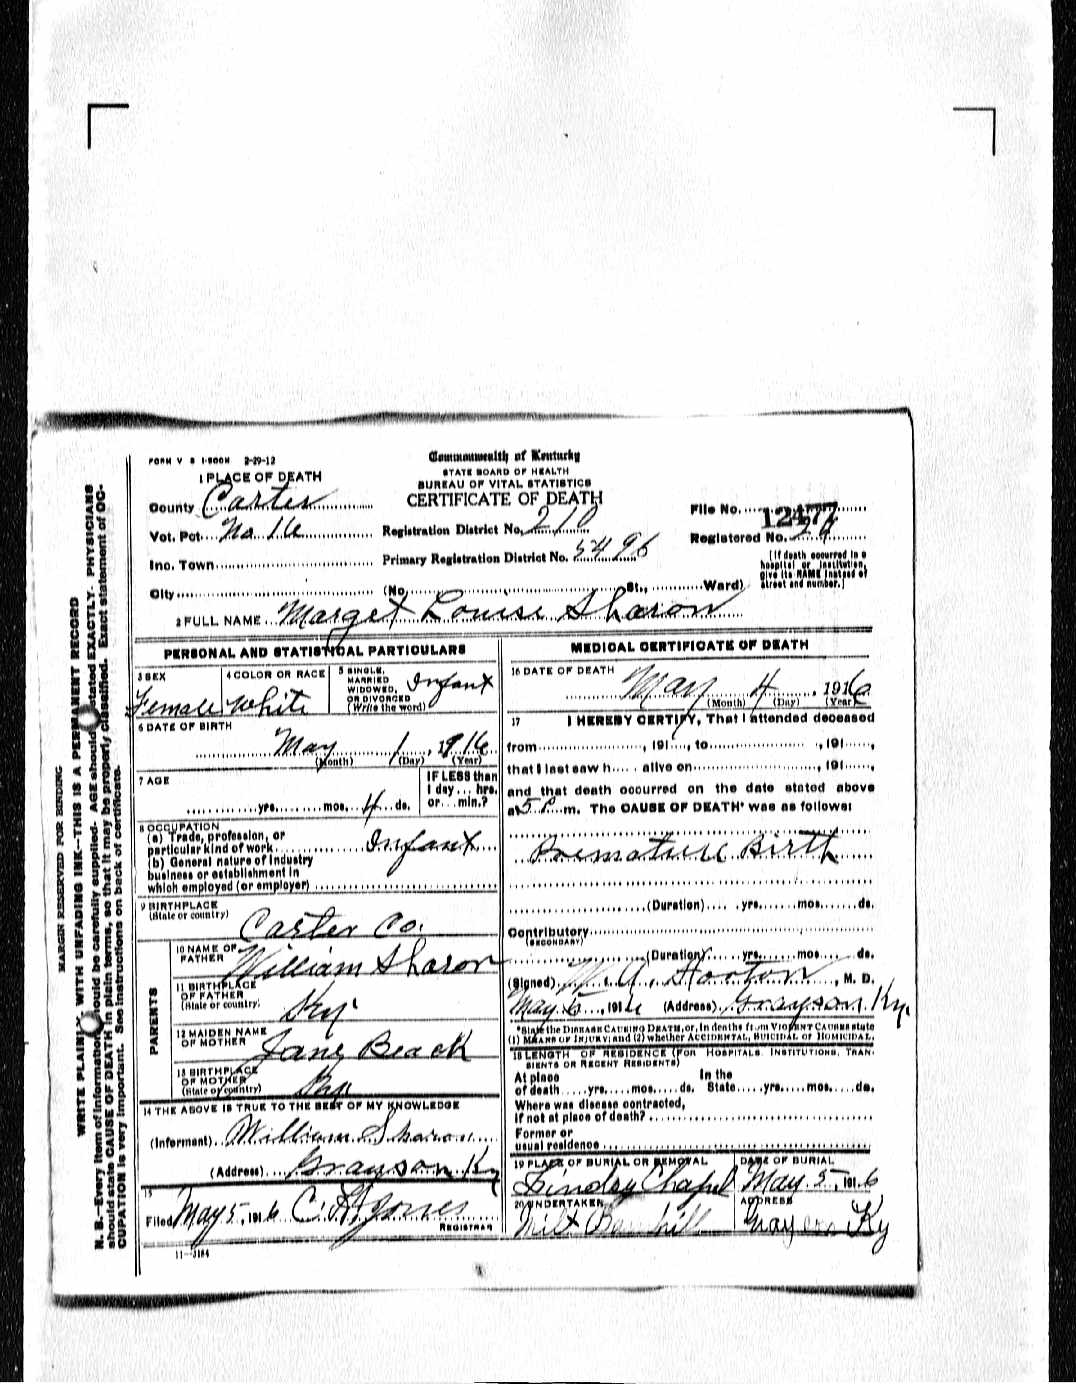 FORM V S 1-500M 2-29-12
Commonwealth of Kentucky
STATE BOARD OF HEALTH
BUREAU OF VITAL STATISTICS
CERTIFICATE OF DEATH
1 PLACE OF DEATH
County Carter
Vot. Pct. No. 16
Inc. Town
City (No. St., Ward)
Registration District No. 210
Primary Registration District No. 5496
File No. 12477
Registered No.
[If death occurred in a hospital or institution, give its NAME instead of street and number.]
2 FULL NAME Marget Louise Sharon
PERSONAL AND STATISTICAL PARTICULARS
3 SEX
Female
4 COLOR OR RACE
White
5 SINGLE, MARRIED WIDOWED, OR DIVORCED (Write the word)
Infant
6 DATE OF BIRTH
May 1, 1916
(Month) (Day) (Year)
7 AGE
yrs. mos. 4 ds.
IF LESS than 1 day... hrs. or... min.?
8 OCCUPATION
(a) Trade, profession, or particular kind of work Infant
(b) General nature of Industry business or establishment in which employed (or employer)
9 BIRTHPLACE
(State or country)
Carter Co.
PARENTS
10 NAME OF FATHER William Sharon
11 BIRTHPLACE OF FATHER (State or country) Ky.
12 MAIDEN NAME OF MOTHER Jane Beack
13 BIRTHPLACE OF MOTHER (State or country) Ky
14 THE ABOVE IS TRUE TO THE BEST OF MY KNOWLEDGE
(Informant) William Sharon
(Address) Grayson Ky
15
Filed May 5, 1916 C. H. Jones
REGISTRAR
11-3184
MEDICAL CERTIFICATE OF DEATH
16 DATE OF DEATH
May 4, 1916
(Month) (Day) (Year)
17 I HEREBY CERTIFY, That I attended deceased
from , 191 , to , 191 ,
that I last saw h alive on , 191 ,
and that death occurred on the date stated above
at 5 P. m. The CAUSE OF DEATH* was as follows:
Premature Birth
(Duration) yrs. mos. ds.
Contributory
(SECONDARY)
(Duration) yrs. mos. ds.
(Signed) W. A. Horton, M. D.
May 5, 1916 (Address) Grayson Ky.
*State the DISEASE CAUSING DEATH, or, in deaths from VIOLENT CAUSES state
(1) MEANS OF INJURY; and (2) whether ACCIDENTAL, SUICIDAL or HOMICIDAL.
18 LENGTH OF RESIDENCE (FOR HOSPITALS, INSTITUTIONS, TRANSIENTS OR RECENT RESIDENTS)
At place of death yrs. mos. ds. In the State yrs. mos. ds.
Where was disease contracted,
if not at place of death?
Former or
usual residence
19 PLACE OF BURIAL OR REMOVAL
Lindsey Chapel
DATE OF BURIAL
May 5, 1916
20 UNDERTAKER
Milt
ADDRESS
Grayson Ky
MARGIN RESERVED FOR BINDING
WRITE PLAINLY WITH UNFADING INK--THIS IS A PERMANENT RECORD
N. B.--Every item of information should be carefully supplied. AGE should be stated EXACTLY. PHYSICIANS
should state CAUSE OF DEATH in plain terms, so that it may be properly classified. Exact statement of OC-
CUPATION is very important. See instructions on back of certificate.